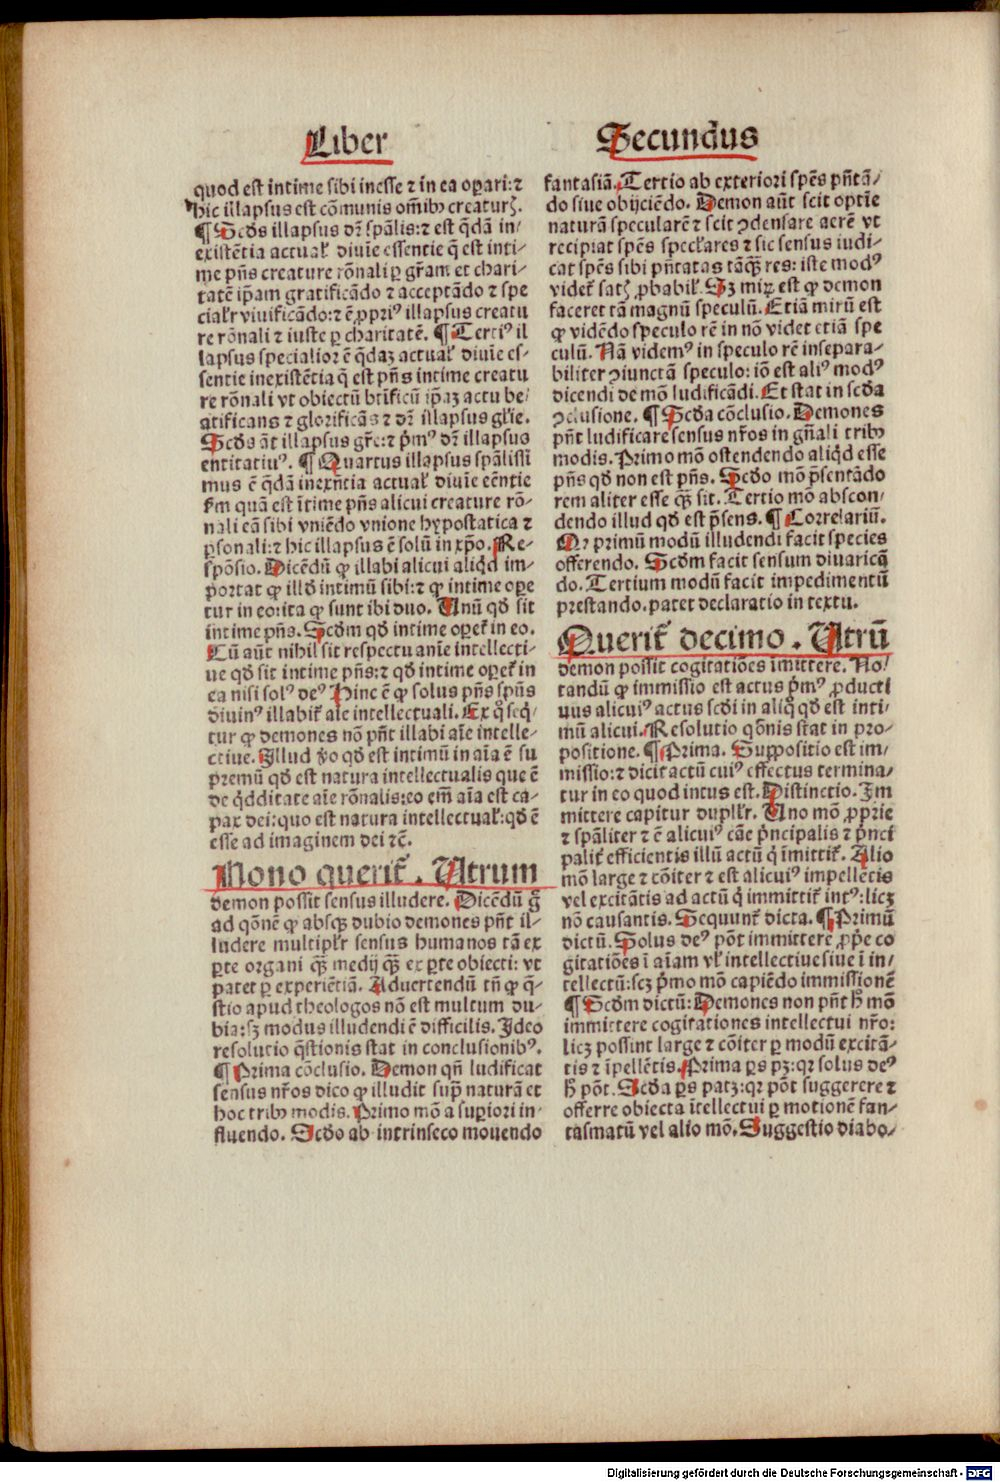 Liber
Secundus
quod est intime sibi inesse ⁊ in ea oꝑari: ⁊
hic illapsus est cõmunis om̃ibꝰ creaturꝫ.
¶ Scd̓s illapsus dr̃ spãlis: ⁊ est q̃dã in/
existẽtia actual̓ diuĩe essentie q̃ est inti-
me pñs creature rõnali ꝑ gr̃am et chari-
tatẽ ip̃am gratificãdo ⁊ acceptãdo ⁊ spe
cial̓r viuificãdo: ⁊ ẽ ꝓpriꝰ illapsus creatu
re rõnali ⁊ iuste ꝑ charitatẽ. ¶ Tertiꝰ il
lapsus specialior ẽ q̃daꝫ actual̓ diuĩe es-
sentie inexistẽtia q̃ est pñs intime creatu
re rõnali vt obiectũ btificũ ip̃aꝫ actu be/
atificans ⁊ glorificãs ⁊ dr̃ illapsus gl̓ie.
Scd̓s aũt illapsus gr̃e: ⁊ p̓mꝰ dr̃ illapsus
entitatiuꝰ. ¶ Quartus illapsus spãlissi
mus ẽ q̃dã inexñtia actual̓ diuĩe eẽntie
ẜm quã est ĩtime pñs alicui creature rõ-
nali eã sibi vniẽdo vnione hypostatica ⁊
ꝑsonali: ⁊ hic illapsus ẽ solũ in xp̃o. Re-
spõsio. Dicẽdũ ꝙ illabi alicui aliq̓d im-
portat ꝙ illd̓ intimũ sibi: ⁊ ꝙ intime oꝑe
tur in eo: ita ꝙ sunt ibi duo. Unũ qd̓ sit
intime pñs. Scd̓m qd̓ intime oꝑet̃ in eo.
Cũ aũt nihil sit respectu anĩe intellecti-
ue qd̓ sit intime pñs: ⁊ qd̓ intime oꝑet̃ in
ea nisi solꝰ deꝰ Hinc ẽ ꝙ solus pñs spñs
diuinꝰ illabit̃ aĩe intellectuali. Ex q̊ seq̓/
tur ꝙ demones nõ pñt illabi aĩe intelle-
ctiue. Illud ṽo qd̓ est intimũ in aĩa ẽ su
premũ qd̓ est natura intellectualis que ẽ
de q̓dditate aĩe rõnalis: eo em̃ aĩa est ca-
pax dei: quo est natura intellectual̓: qd̓ ẽ
esse ad imaginem dei ⁊c̃.
Nono querit̃. Utrum
demon possit sensus illudere. Dicẽdũ g̃
ad qõnẽ ꝙ absqꝫ dubio demones pñt il-
ludere multipl̓r sensus humanos tã ex
ꝑte organi q̃ꝫ medij q̃ꝫ ex ꝑte obiecti: vt
patet ꝑ experiẽtiã. Aduertendũ tñ ꝙ q̃-
stio apud theologos nõ est multum du-
bia: sꝫ modus illudendi ẽ difficilis. Ideo
resolutio q̃stionis stat in conclusionibꝰ.
¶ Prima cõclusio. Demon qñ ludificat
sensus nr̃os dico ꝙ illudit supra naturã et
hoc tribꝰ modis. Primo mõ a suꝑiori in-
fluendo. Scd̓o ab intrinseco mouendo
fantasiã. Tertio ab exteriori spẽs pñtã/
do siue obijciẽdo. Demon aũt scit optĩe
naturã specularẽ ⁊ scit ↄdensare aerẽ vt
recipiat spẽs specl̓ares ⁊ sic sensus iudi-
cat spẽs sibi pñtatas tãq̃ꝫ res: iste modꝰ
videt̃ satꝫ ꝓbabil̓. Sꝫ mirꝫ est ꝙ demon
faceret tã magnũ speculũ. Etiã mirũ est
ꝙ vidẽdo speculo rẽ in nõ videt etiã spe
culũ. Nã videmꝰ in speculo rẽ insepara-
biliter ↄiunctã speculo: iõ est aliꝰ modꝰ
dicendi de mõ ludificãdi. Et stat in scd̓a
ↄclusione. ¶ Scd̓a cõclusio. Demones
pñt ludificare sensus nr̃os in gñali tribꝰ
modis. Primo mõ ostendendo aliq̓d esse
pñs qd̓ non est pñs. Scd̓o mõ p̃sentãdo
rem aliter esse q̃ꝫ sit. Tertio mõ abscon/
dendo illud qd̓ est p̃sens. ¶ Correlariũ.
Qꝛ primũ modũ illudendi facit species
offerendo. Scd̓m facit sensum diuarican
do. Tertium modũ facit impedimentũ
prestando. patet declaratio in textu.
Querit̃ decimo. Utrũ
demon possit cogitatiões ĩmittere. No/
tandũ ꝙ immissio est actus p̓mꝰ ꝓducti
uus alicuiꝰ actus scd̓i in aliq̊ qd̓ est inti-
mũ alicui. Resolutio qõnis stat in pro-
positione. ¶ Prima. Suppositio est im/
missio: ⁊ dicit actũ cuiꝰ effectus termina/
tur in eo quod intus est. Distinctio. Im
mittere capitur dupl̓r. Uno mõ ꝓprie
⁊ spãliter ⁊ ẽ alicuiꝰ cãe p̓ncipalis ⁊ p̓nci
palit̃ efficientis illũ actũ q̓ ĩmittit̃. Alio
mõ large ⁊ cõiter ⁊ est alicuiꝰ impellẽtis
vel excitãtis ad actũ q̓ immittit̃ intꝰ: licꝫ
nõ causantis. Sequunt̃ dicta. ¶ Primũ
dictũ. Solus deꝰ põt immittere ꝓp̓e co
gitatiões ĩ aĩam vl̓ intellectiue siue ĩ in/
tellectũ: scꝫ p̓mo mõ capiẽdo immissionẽ
¶ Scd̓m dictũ: Demones non pñt h̓ mõ
immittere cogitationes intellectui nr̃o:
licꝫ possint large ⁊ cõiter ꝑ modũ excitã-
tis ⁊ ĩpellẽtis. Prima ꝑs pꝫ: qꝛ solus deꝰ
h̓ põt. Scd̓a ꝑs patꝫ: qꝛ põt suggerere ⁊
offerre obiecta ĩtellectui ꝑ motionẽ fan/
tasmatũ vel alio mõ. Suggestio diabo/
Digitalisierung gefördert durch die Deutsche Forschungsgemeinschaft - DFG